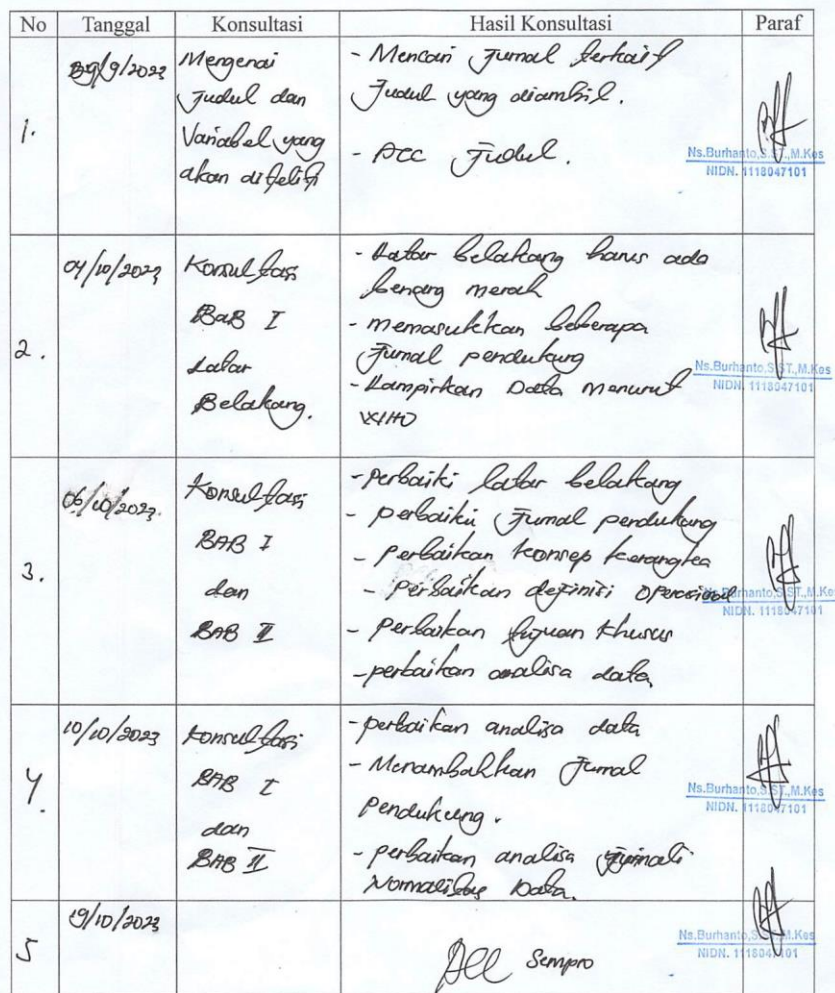 No Tanggal Konsultasi Hasil Konsultasi Paraf
1.
/9/2023
Mengenai
Judul dan
Variabel yang
akan diteliti
- Mencari Jurnal terkait
Judul yang diambil.
- Acc Judul.
Ns.Burhanto,S.ST.,M.Kes
NIDN. 1118047101
2.
04/10/2023
Konsultasi
BaB I
Latar
Belakang.
- Latar belakang harus ada
benang merah
- memasukkan beberapa
Jurnal pendukung
- Lampirkan Data menurut
WHO
Ns.Burhanto,S.ST.,M.Kes
NIDN. 1118047101
3.
06/10/2023
Konsultasi
BAB I
dan
BAB II
- perbaiki latar belakang
- perbaiki Jurnal pendukung
- perbaikan konsep kerangka
- perbaikan definisi operasional
- perbaikan tujuan khusus
- perbaikan analisa data
Ns.Burhanto,S.ST.,M.Kes
NIDN. 1118047101
4.
10/10/2023
Konsultasi
BAB I
dan
BAB II
- perbaikan analisa data
- Menambahkan Jurnal
pendukung.
- perbaikan analisa
Normalitas Data.
Ns.Burhanto,S.ST.,M.Kes
NIDN. 1118047101
5
19/10/2023
Acc Sempro
Ns.Burhanto,S.ST.,M.Kes
NIDN. 1118047101